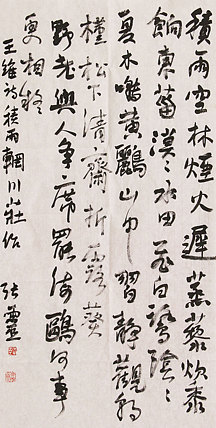 積雨空林煙火遲蒸藜炊黍
餉東菑漠々水田飛白鷺陰々
夏木囀黃鸝山中習靜觀朝
槿松下清齋折露葵
野老與人爭席罷海鷗何事
更相疑
王維詩積雨輞川莊作 張靈